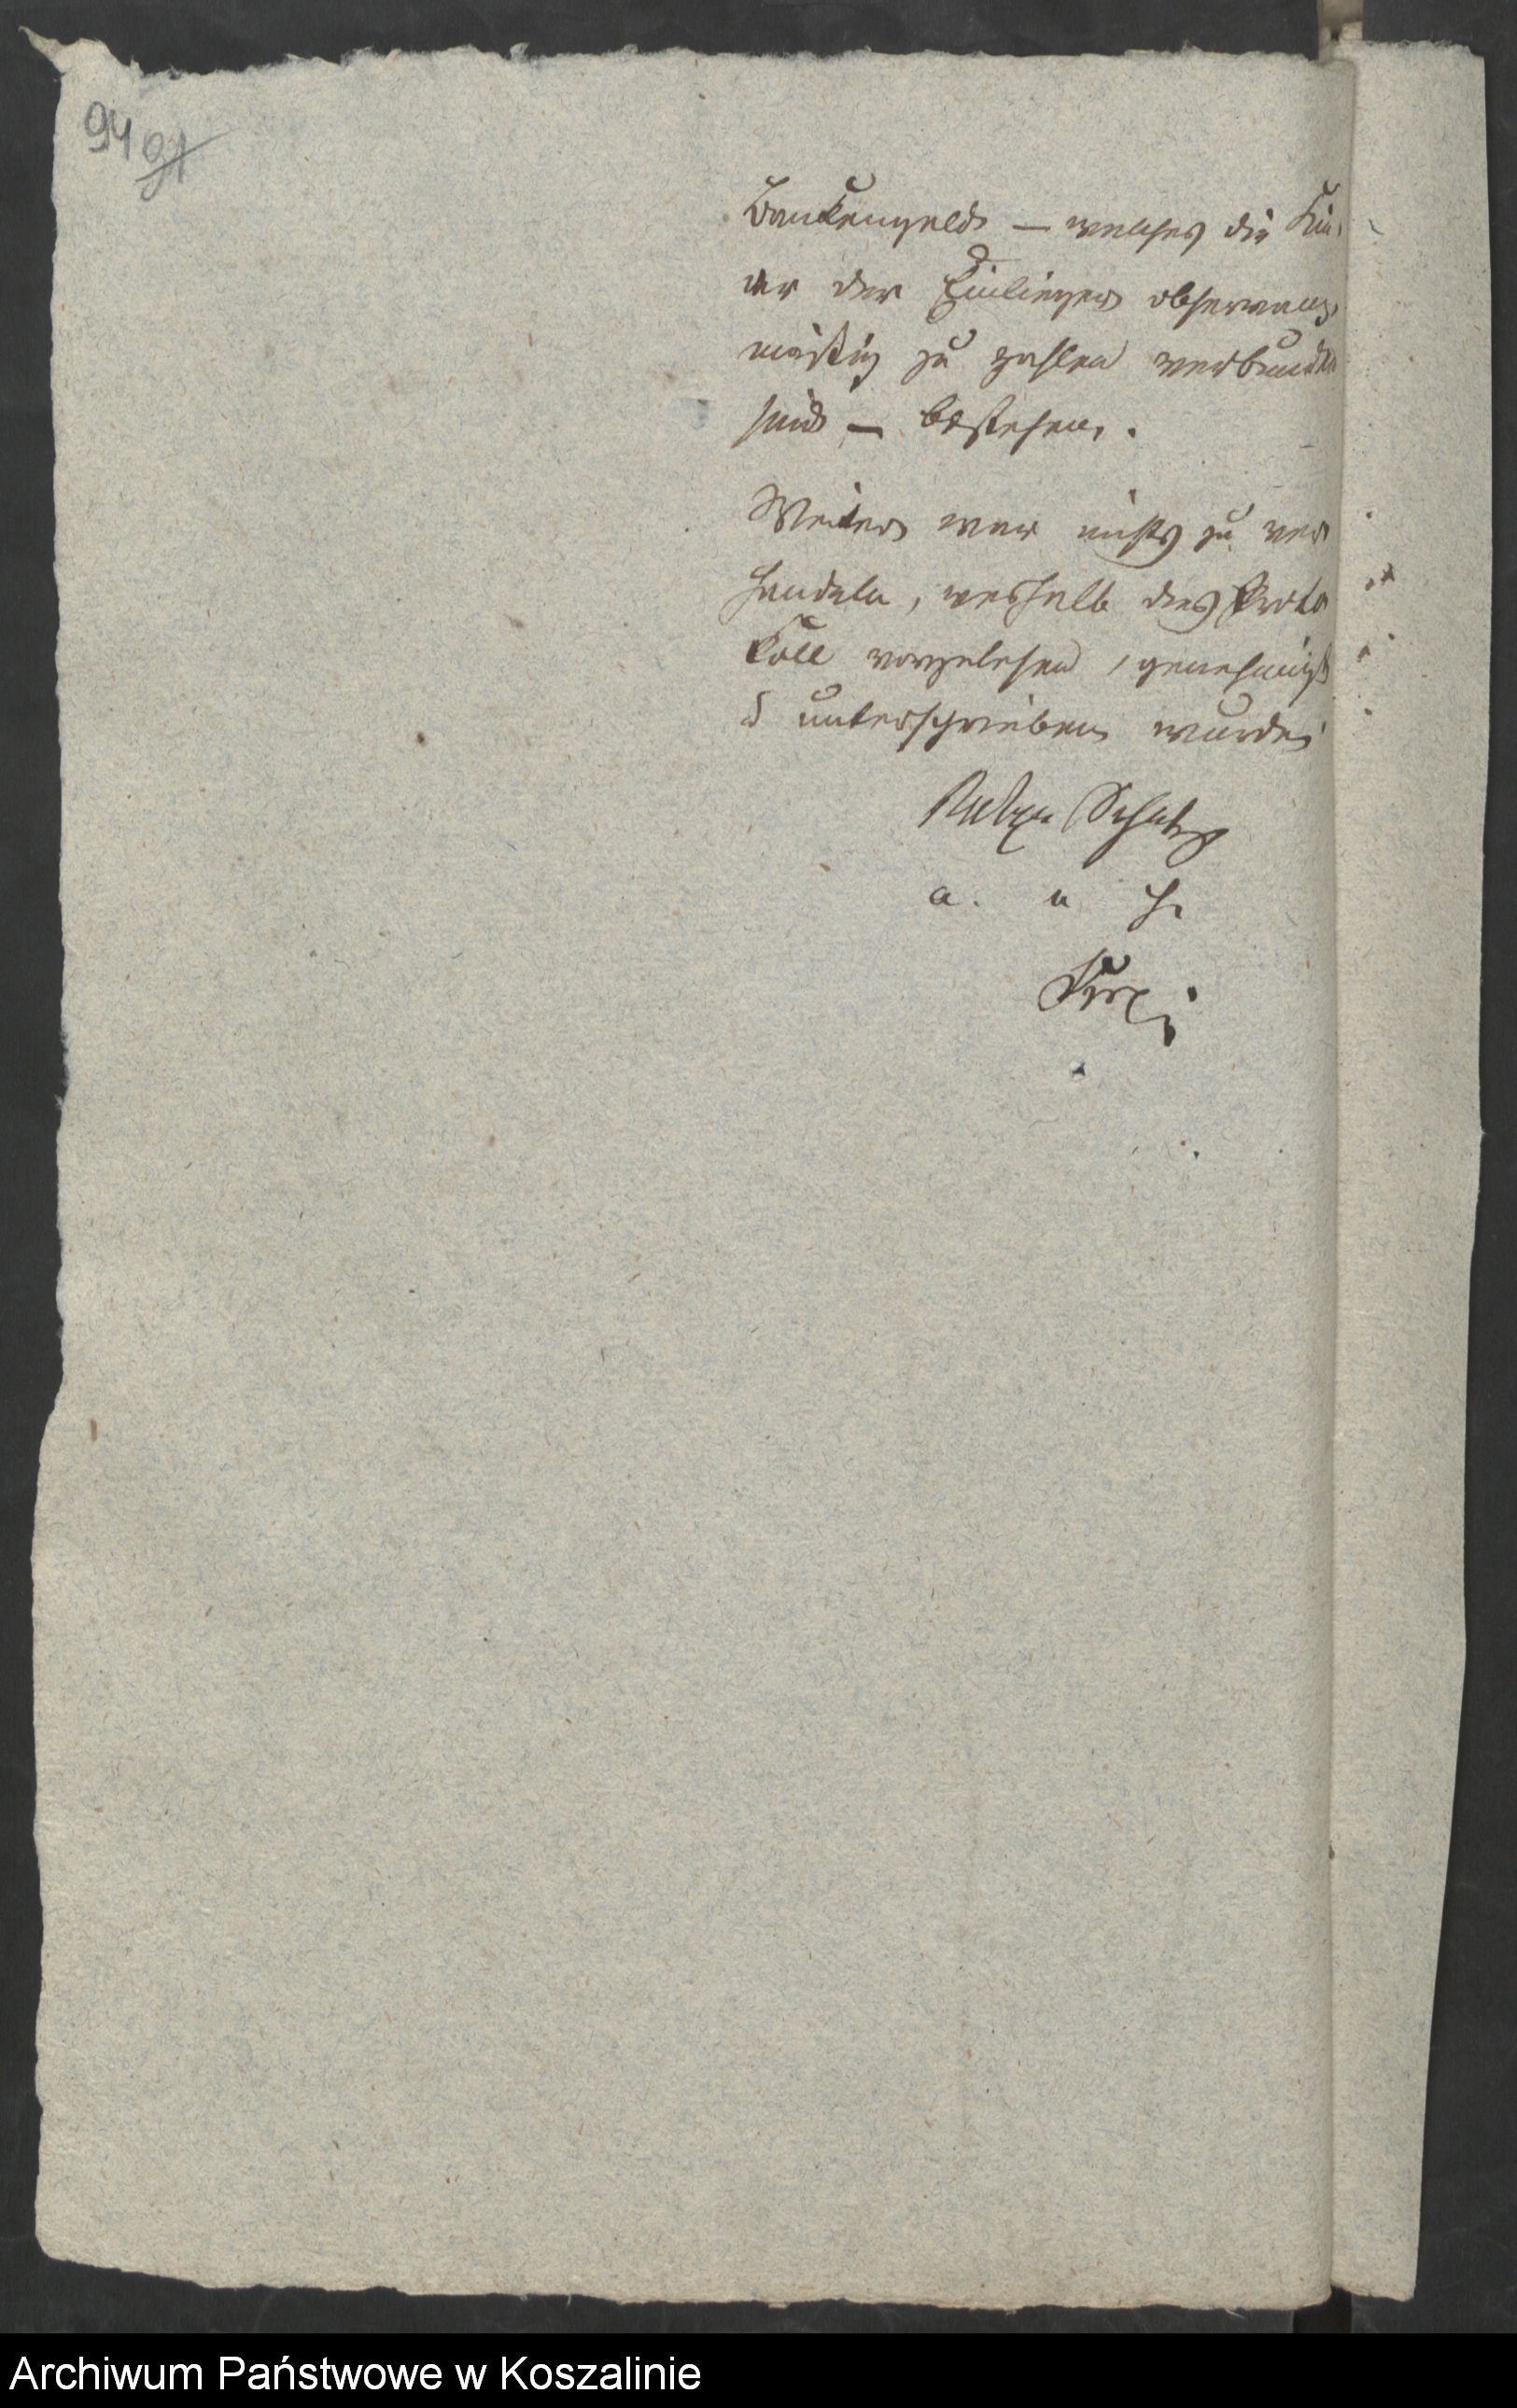 94 91
Bankengeld — welches die Kin-
der der Einlieger observanz-
mäßig zu zahlen verbunden
sind — bestehen.
Weiter war nichts zu ver
handeln, weshalb dies Proto
koll vorgelesen, genehmigt
u unterschrieben wurde
Schulz
a. u. s.
Archiwum Państwowe w Koszalinie